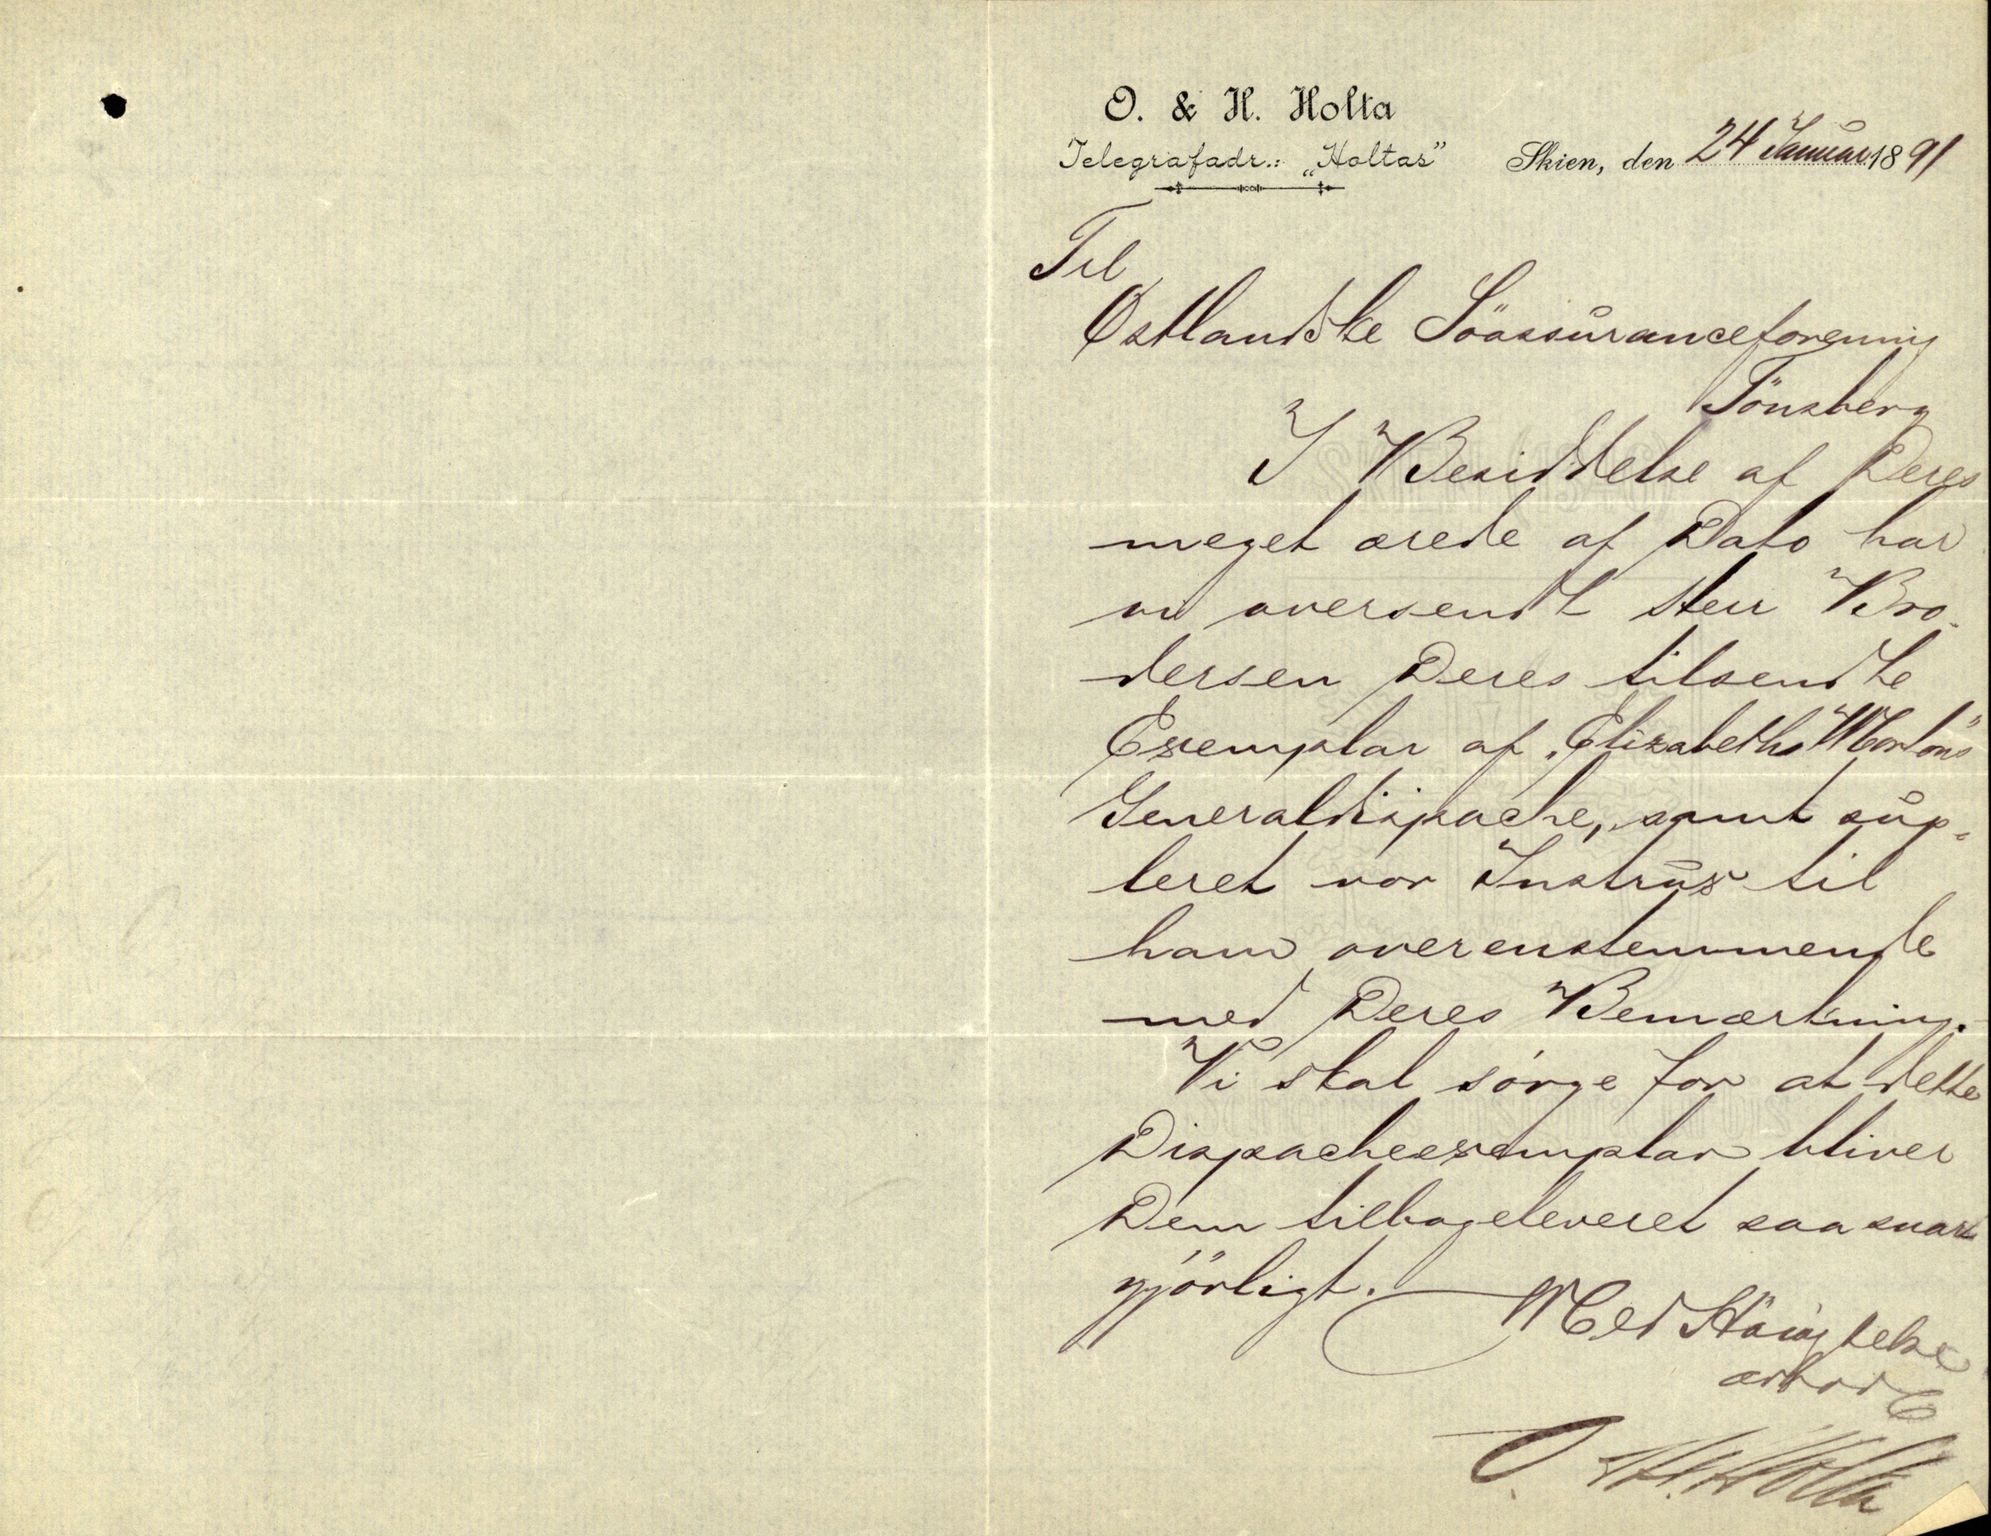 O. & H. Holta
Telegrafadr.: „Holtas”
Skien, den 24 Januar 1891
Til
Østlandske Söassuranceforening
Tönsberg
I Besiddelse af Deres
meget ærede af Dato har
vi oversendt Herr Bro-
dersen Deres tilsendte
Exemplar af „Elizabeth Morton's
Generaldispache, samt sup-
leret vor Instrux til
ham overenstemmende
med Deres Bemærkning.
Vi skal sörge for at dette
Dispacheexemplar bliver
Dem tilbageleveret saa snart
gjörligt.
Med Höiagtelse
ærbödt
O. & H. Holta